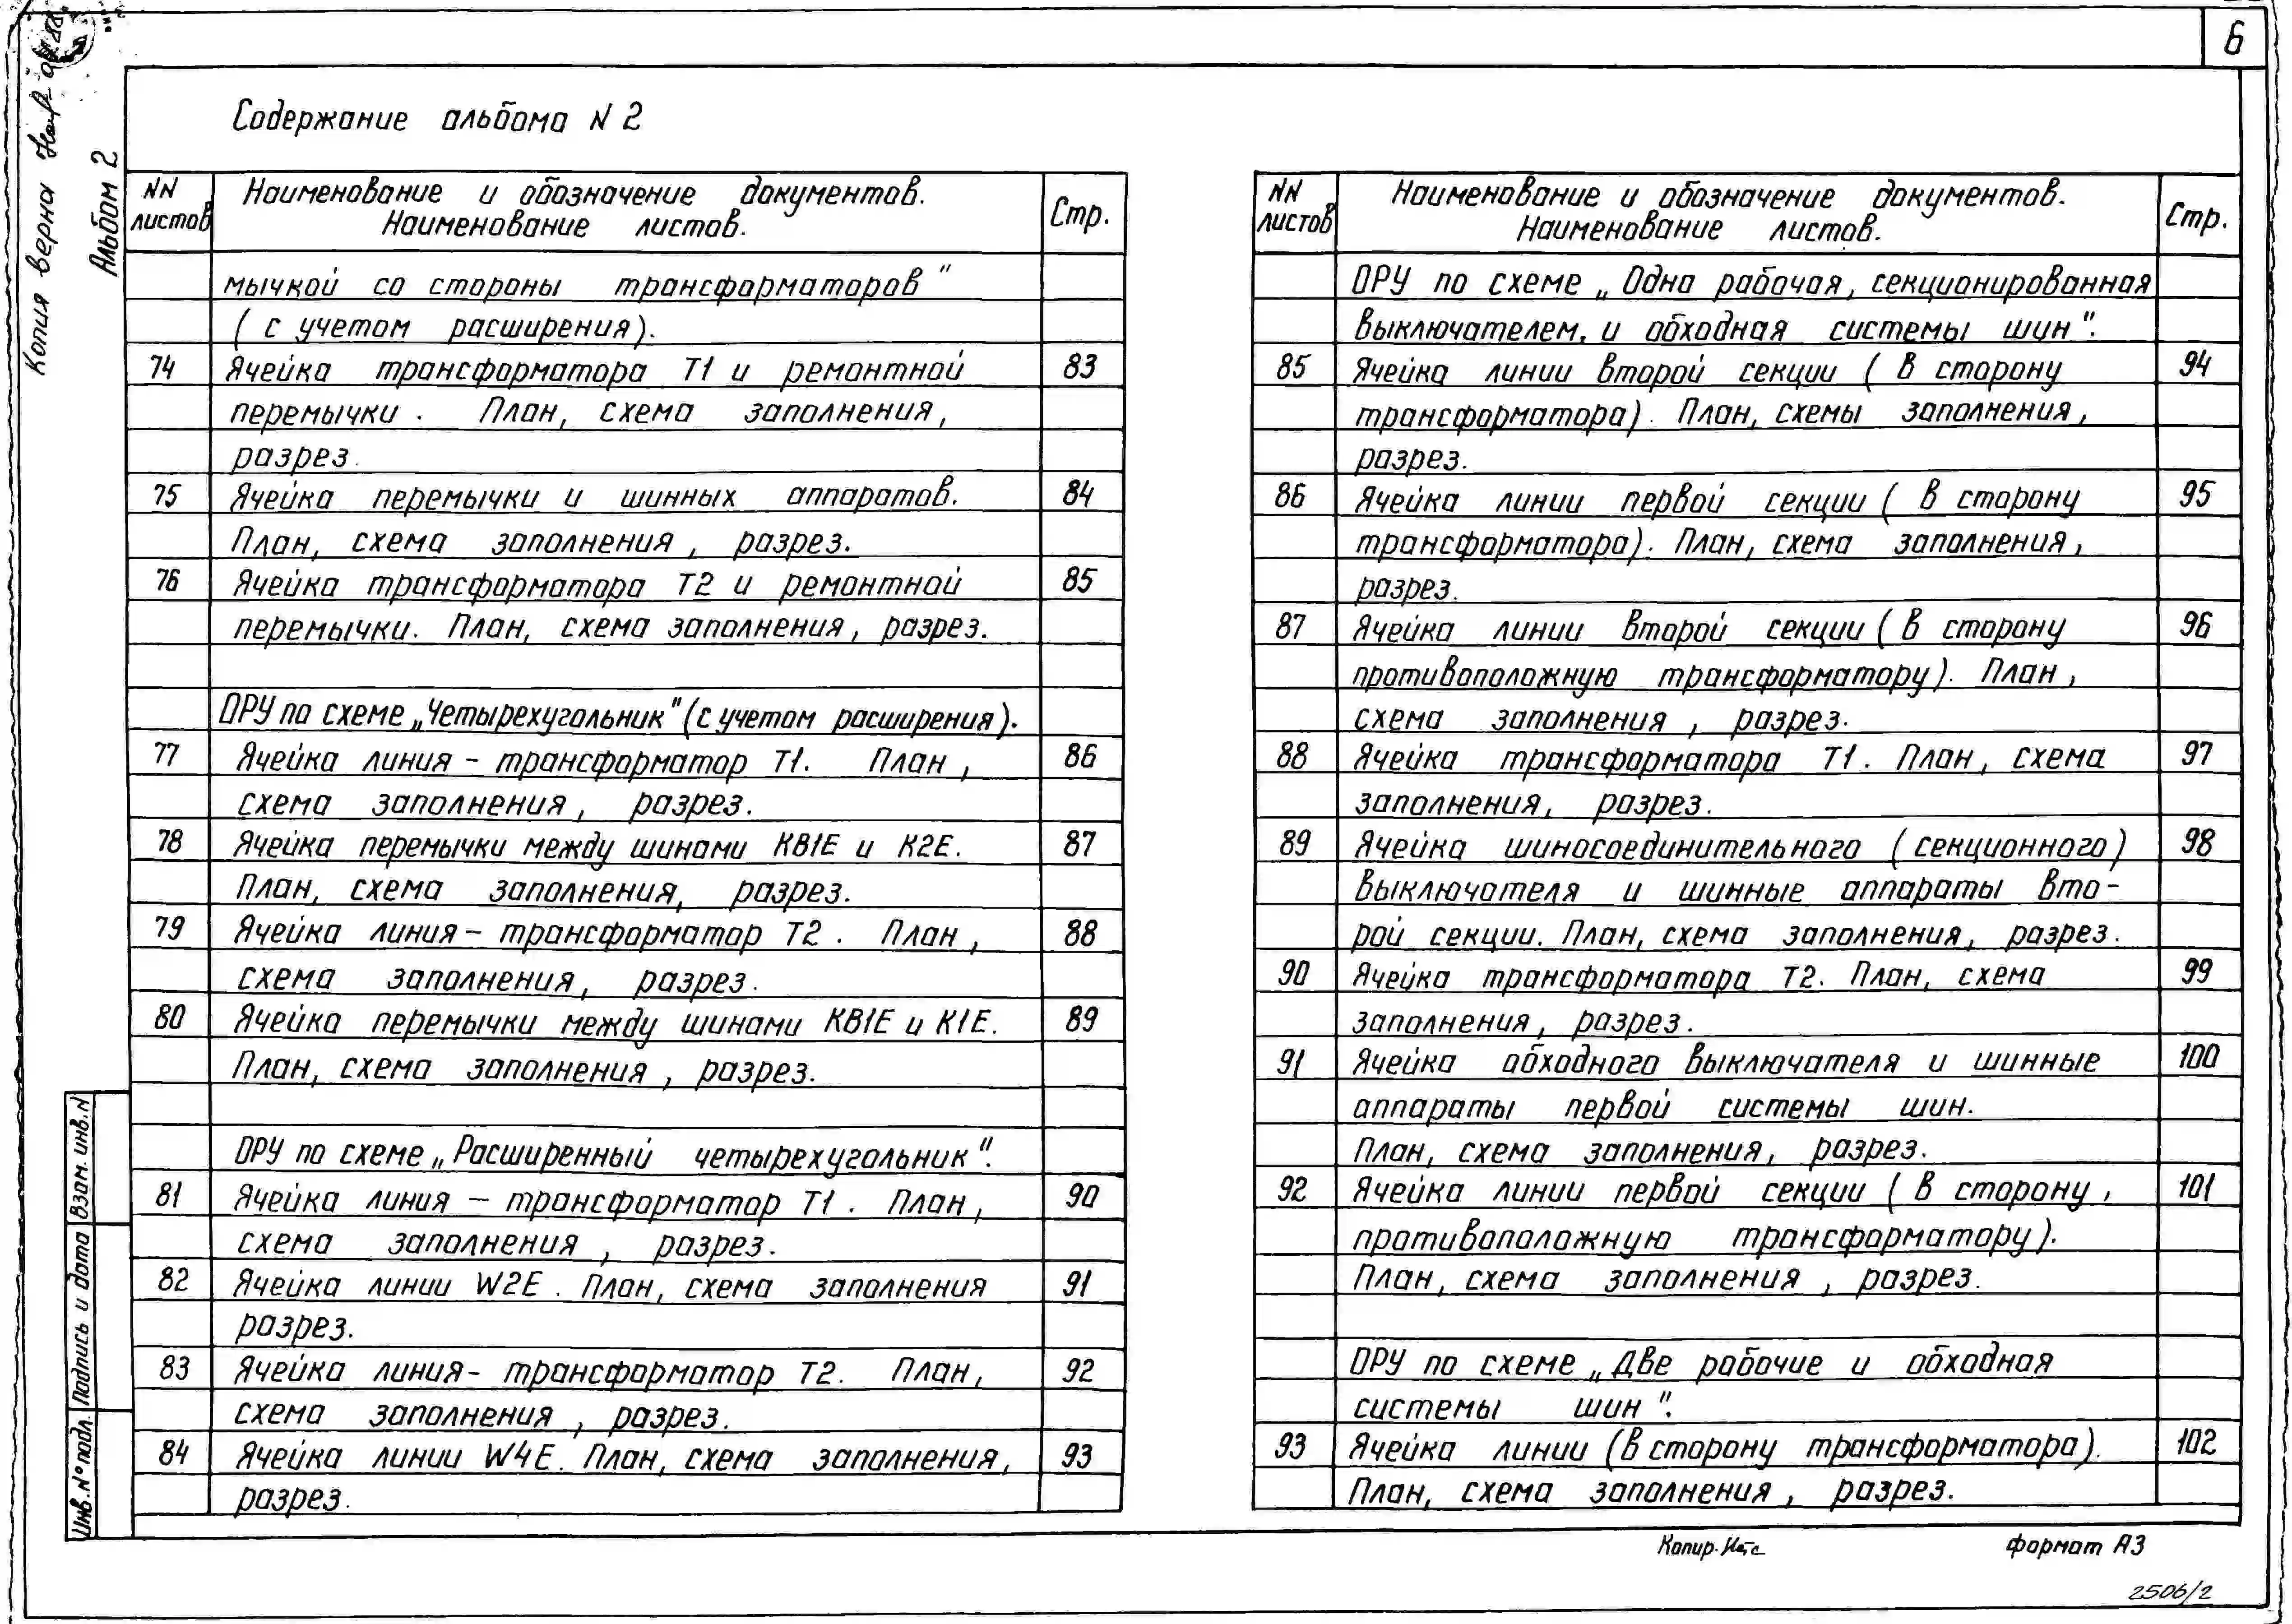 6
Копия верна
Альбом 2
Содержание альбома N 2
NN листов
Наименование и обозначение документов.
Наименование листов.
Стр.
мычкой со стороны трансформаторов"
(с учетом расширения).
74 Ячейка трансформатора Т1 и ремонтной 83
перемычки. План, схема заполнения,
разрез.
75 Ячейка перемычки и шинных аппаратов. 84
План, схема заполнения, разрез.
76 Ячейка трансформатора Т2 и ремонтной 85
перемычки. План, схема заполнения, разрез.
ОРУ по схеме „Четырехугольник" (с учетом расширения).
77 Ячейка линия - трансформатор Т1. План, 86
схема заполнения, разрез.
78 Ячейка перемычки между шинами КВ1Е и К2Е. 87
План, схема заполнения, разрез.
79 Ячейка линия - трансформатор Т2. План, 88
схема заполнения, разрез.
80 Ячейка перемычки между шинами КВ1Е и К1Е. 89
План, схема заполнения, разрез.
ОРУ по схеме „Расширенный четырехугольник".
81 Ячейка линия - трансформатор Т1. План, 90
схема заполнения, разрез.
82 Ячейка линии W2E. План, схема заполнения 91
разрез.
83 Ячейка линия - трансформатор Т2. План, 92
схема заполнения, разрез.
84 Ячейка линии W4E. План, схема заполнения, 93
разрез.
NN листов
Наименование и обозначение документов.
Наименование листов.
Стр.
ОРУ по схеме „Одна рабочая, секционированная
выключателем, и обходная системы шин".
85 Ячейка линии второй секции (в сторону 94
трансформатора). План, схемы заполнения,
разрез.
86 Ячейка линии первой секции (в сторону 95
трансформатора). План, схема заполнения,
разрез.
87 Ячейка линии второй секции (в сторону 96
противоположную трансформатору). План,
схема заполнения, разрез.
88 Ячейка трансформатора Т1. План, схема 97
заполнения, разрез.
89 Ячейка шиносоединительного (секционного) 98
выключателя и шинные аппараты вто-
рой секции. План, схема заполнения, разрез.
90 Ячейка трансформатора Т2. План, схема 99
заполнения, разрез.
91 Ячейка обходного выключателя и шинные 100
аппараты первой системы шин.
План, схема заполнения, разрез.
92 Ячейка линии первой секции (в сторону, 101
противоположную трансформатору).
План, схема заполнения, разрез.
ОРУ по схеме „Две рабочие и обходная
системы шин".
93 Ячейка линии (в сторону трансформатора). 102
План, схема заполнения, разрез.
Взам. инв. N
Подпись и дата
Инв. N° подл.
Копир.
формат А3
2506/2